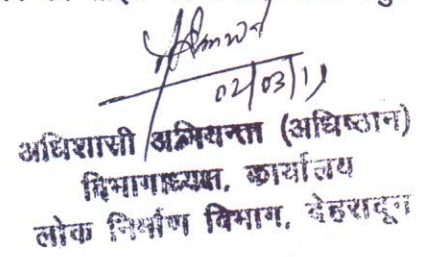 02/03/19
अधिशासी अभियन्ता (अधिष्ठान)
विभागाध्यक्ष, कार्यालय
लोक निर्माण विभाग, देहरादून